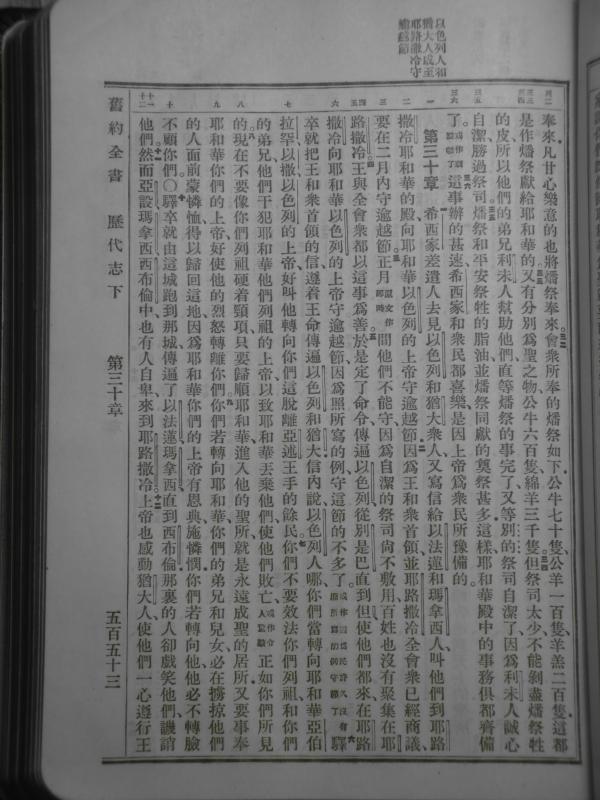 以色列人和
猶大人咸至
耶路撒冷守
逾越節
奉來凡甘心樂意的也將燔祭奉來會衆所奉的燔祭如下公牛七十隻公羊一百隻羊羔二百隻這都
是作燔祭獻給耶和華的又有分別爲聖之物公牛六百隻綿羊三千隻但祭司太少不能剝盡燔祭牲
的皮所以他們的弟兄利未人幫助他們直等燔祭的事完了又等別的祭司自潔了因爲利未人誠心
自潔勝過祭司燔祭和平安祭牲的脂油並燔祭同獻的奠祭甚多這樣耶和華殿中的事務俱都齊備
了這事辦的甚速希西家和衆民都喜樂是因上帝爲衆民所豫備的
第三十章 希西家差遣人去見以色列和猶大衆人又寫信給以法蓮和瑪拿西人叫他們到耶路
撒冷耶和華的殿向耶和華以色列的上帝守逾越節因爲王和衆首領並耶路撒冷全會衆已經商議
要在二月內守逾越節正月間他們不能守因爲自潔的祭司尚不敷用百姓也沒有聚集在耶
路撒冷王與全會衆都以這事爲善於是定了命令傳遍以色列從別是巴直到但使他們都來在耶路
撒冷向耶和華以色列的上帝守逾越節因爲照所寫的例守這節的不多了驛
卒就把王和衆首領的信遵着王命傳遍以色列和猶大信內說以色列人哪你們當轉向耶和華亞伯
拉罕以撒以色列的上帝好叫他轉向你們這脫離亞述王手的餘民你們不要效法你們列祖和你們
的弟兄他們干犯耶和華他們列祖的上帝以致耶和華丟棄他們使他們敗亡正如你們所見
的現在不要像你們列祖硬着頸項只要歸順耶和華進入他的聖所就是永遠成聖的居所又要事奉
耶和華你們的上帝好使他的烈怒轉離你們你們若轉向耶和華你們的弟兄和兒女必在擄掠他們
的人面前蒙憐恤得以歸回這地因爲耶和華你們的上帝有恩典施憐憫你們若轉向他他必不轉臉
不顧你們〇驛卒就由這城跑到那城傳遍了以法蓮瑪拿西直到西布倫那裏的人卻戲笑他們譏誚
他們然而亞設瑪拿西西布倫中也有人自卑來到耶路撒冷上帝也感動猶大人使他們一心遵行王
舊約全書 歷代志下 第三十章 五百五十三